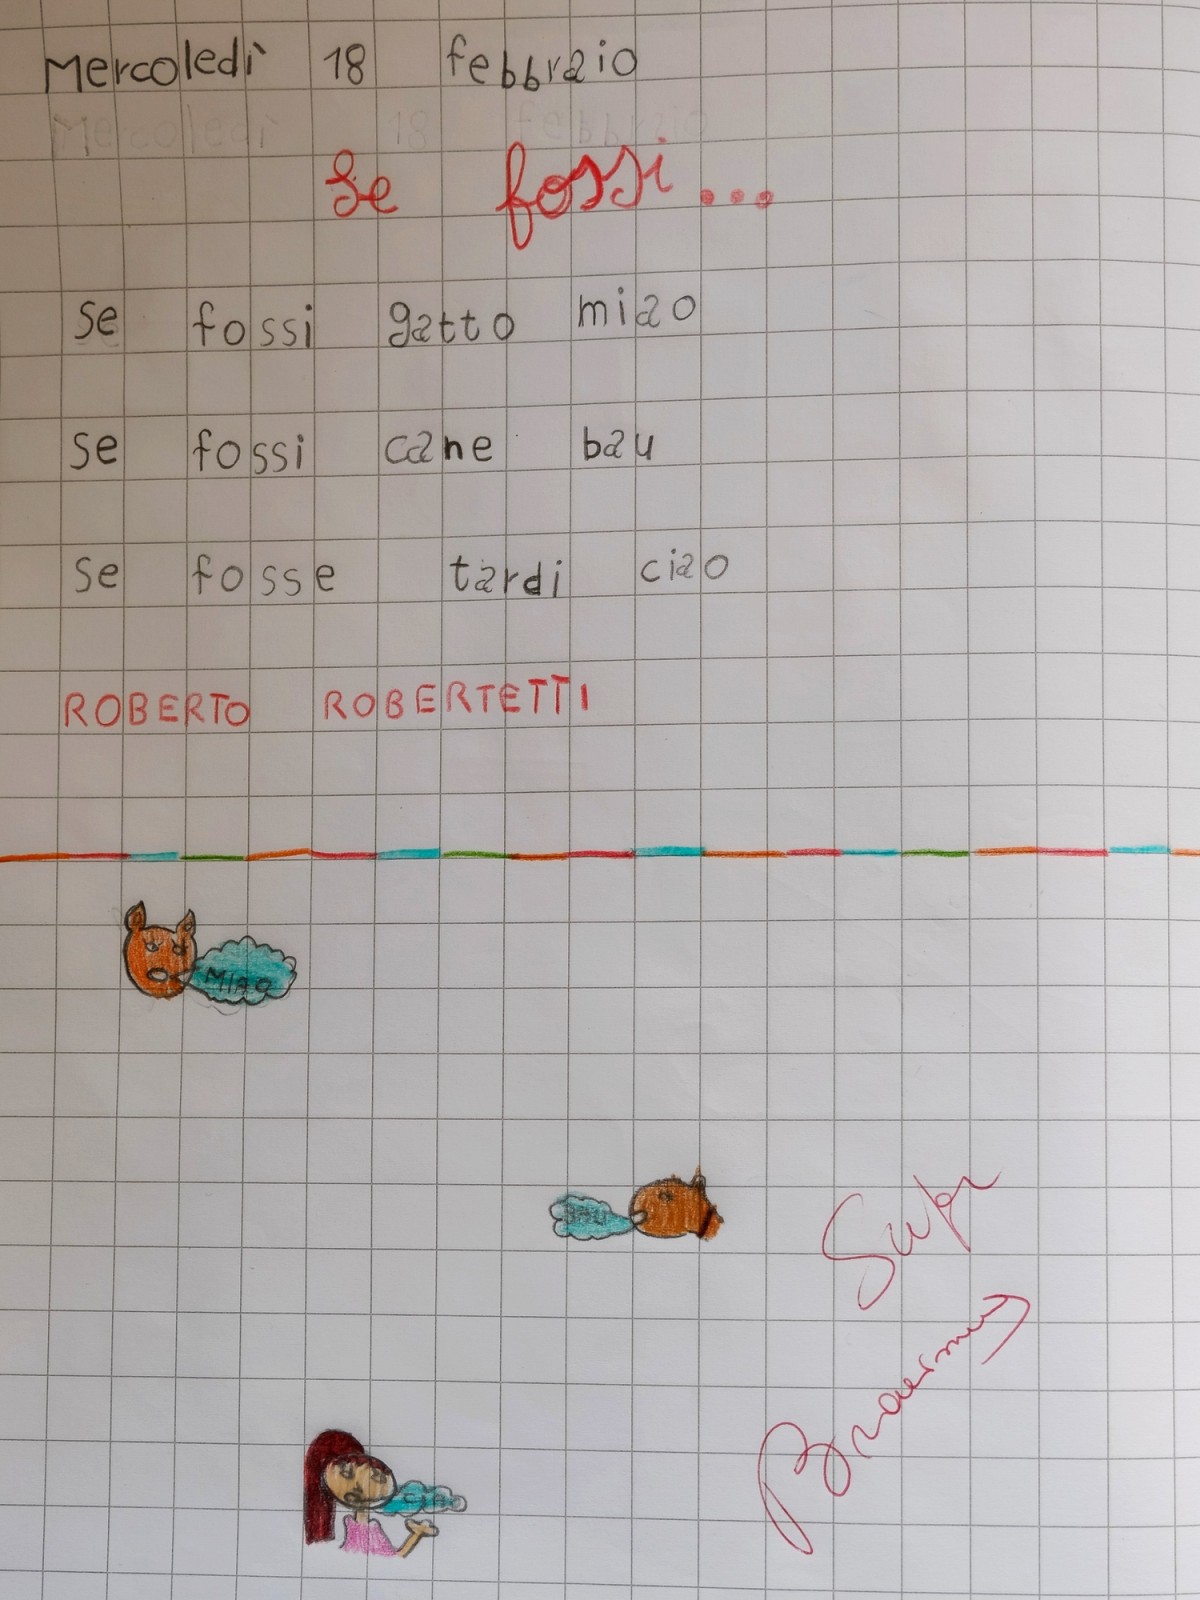 Mercoledì 18 febbraio
Mercoledì 18 febbraio
Se fossi...
se fossi gatto miao
se fossi cane bau
se fosse tardi ciao
ROBERTO ROBERTETTI
MIAO
BAU
CIAO
Super